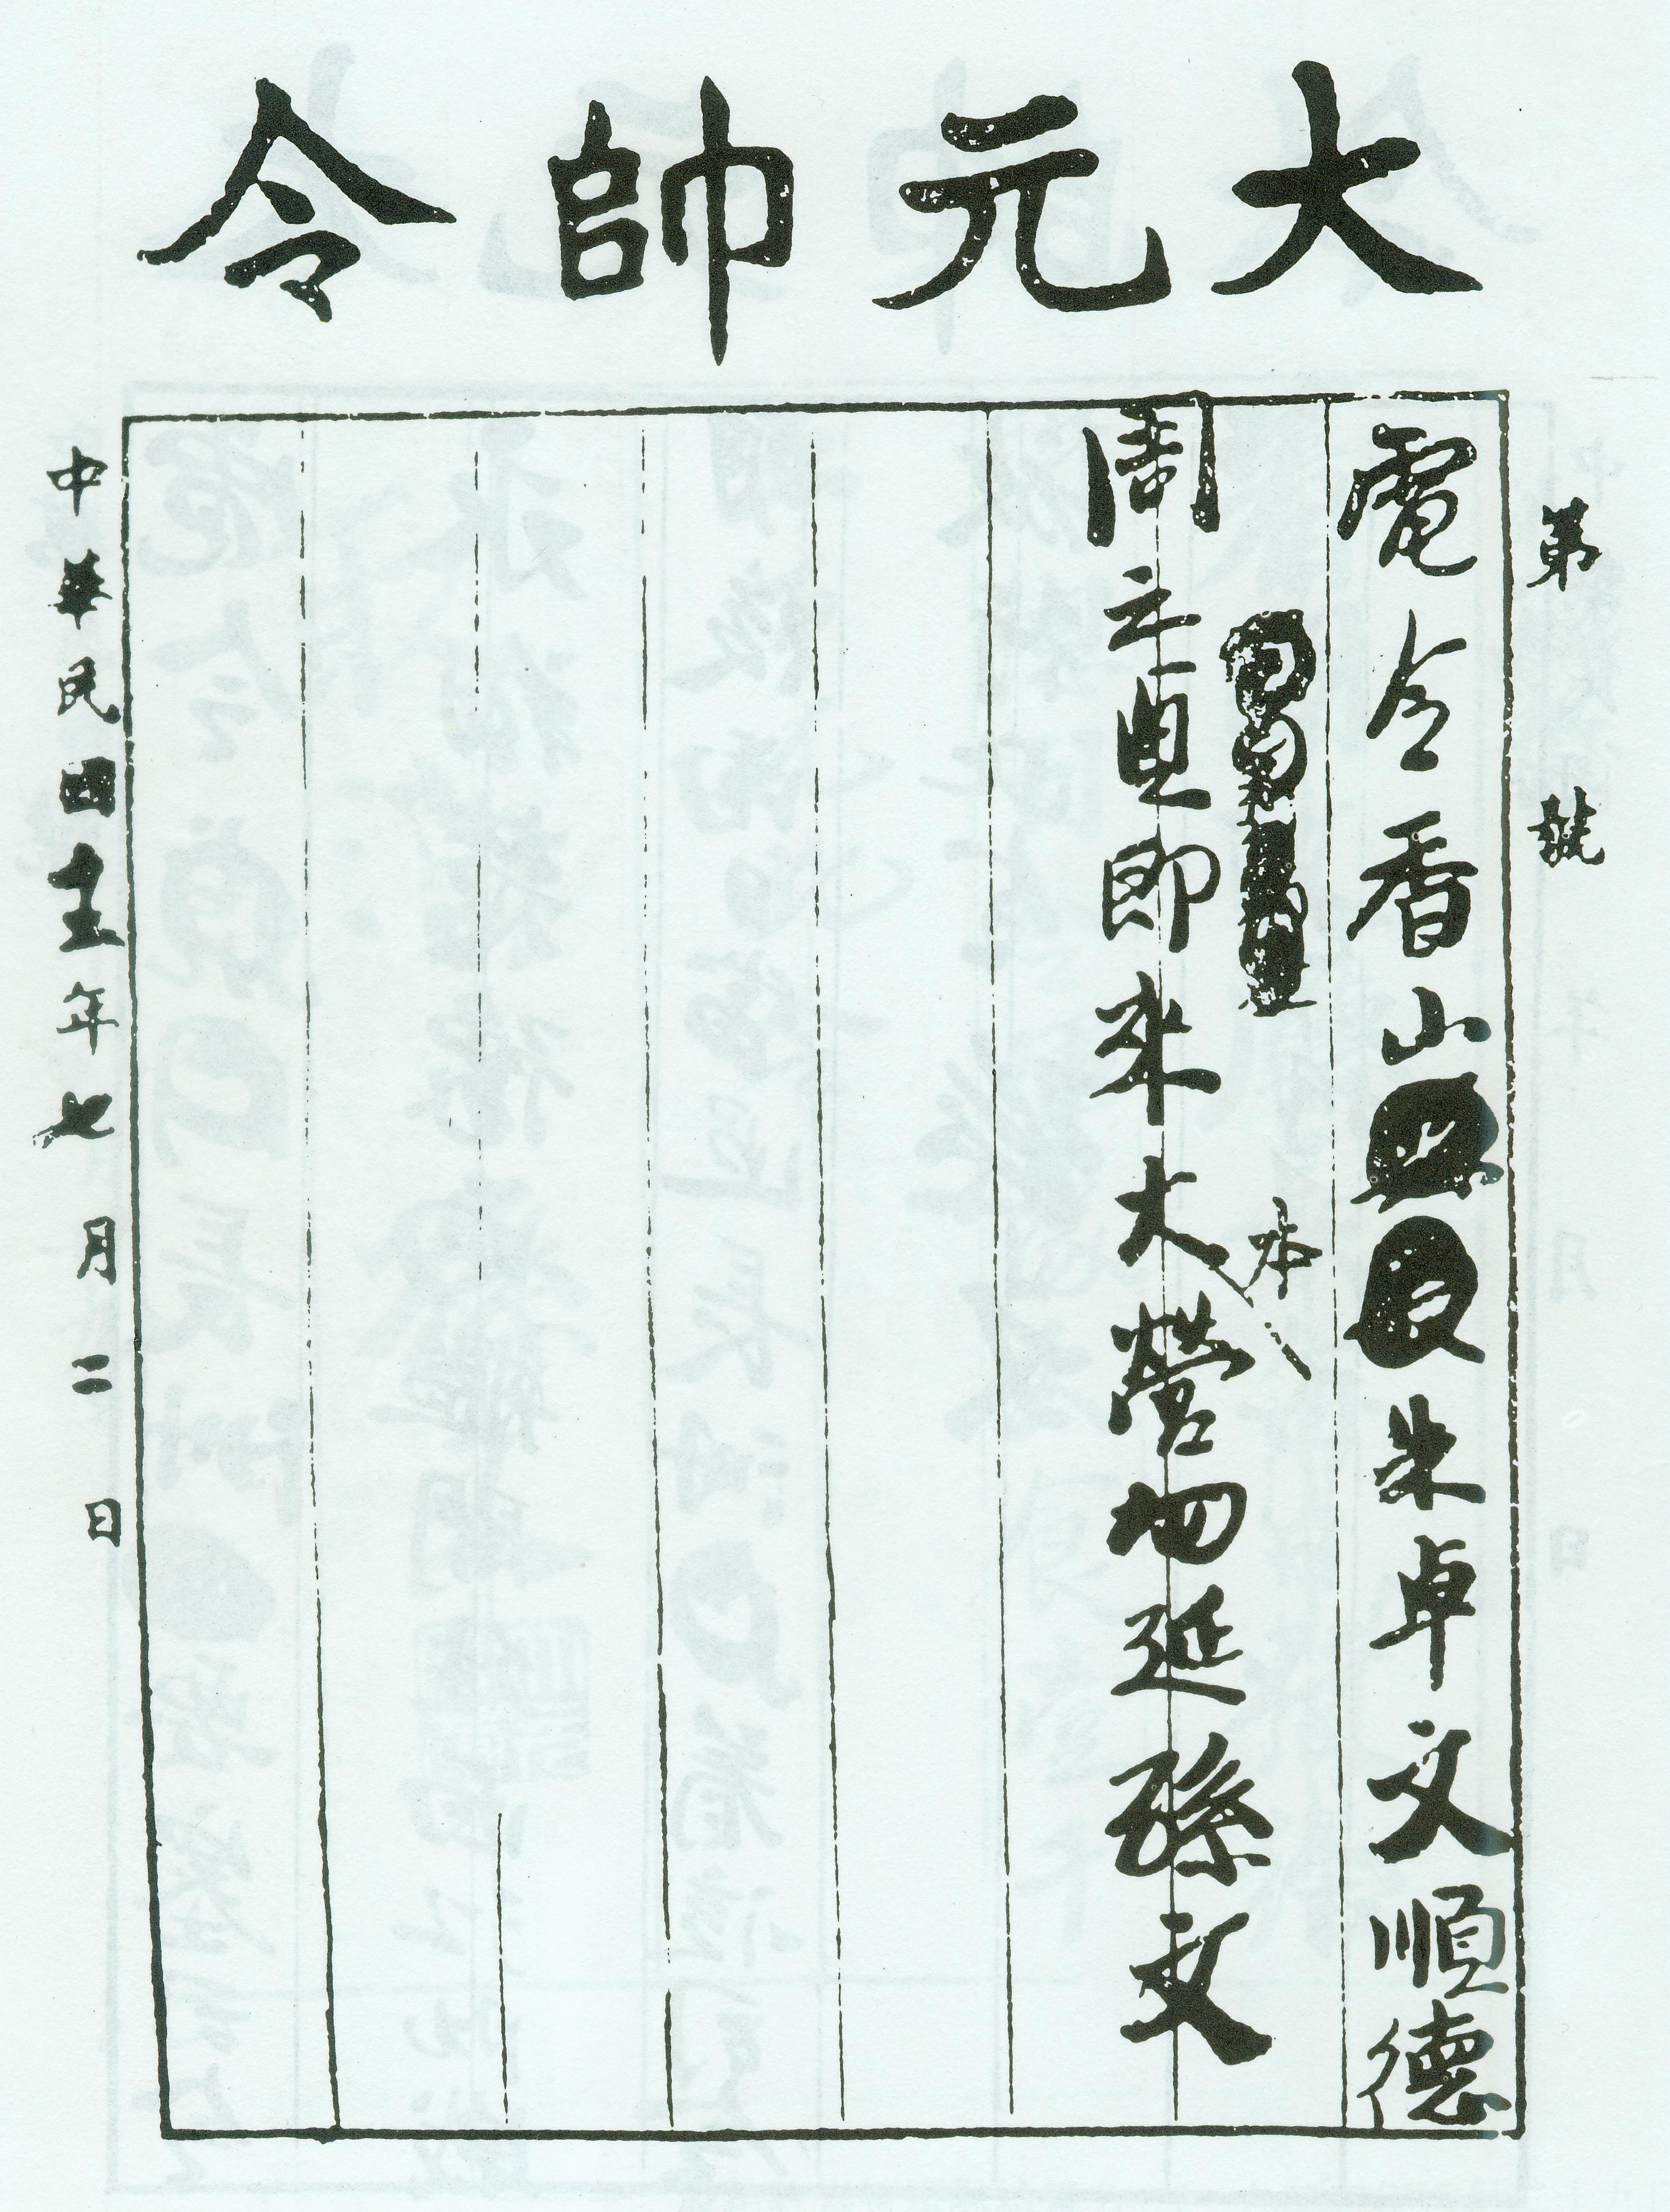 大元帥令
第 號
電令香山朱卓文順德
周之貞即來大本營延孫文
中華民國十二年七月二日